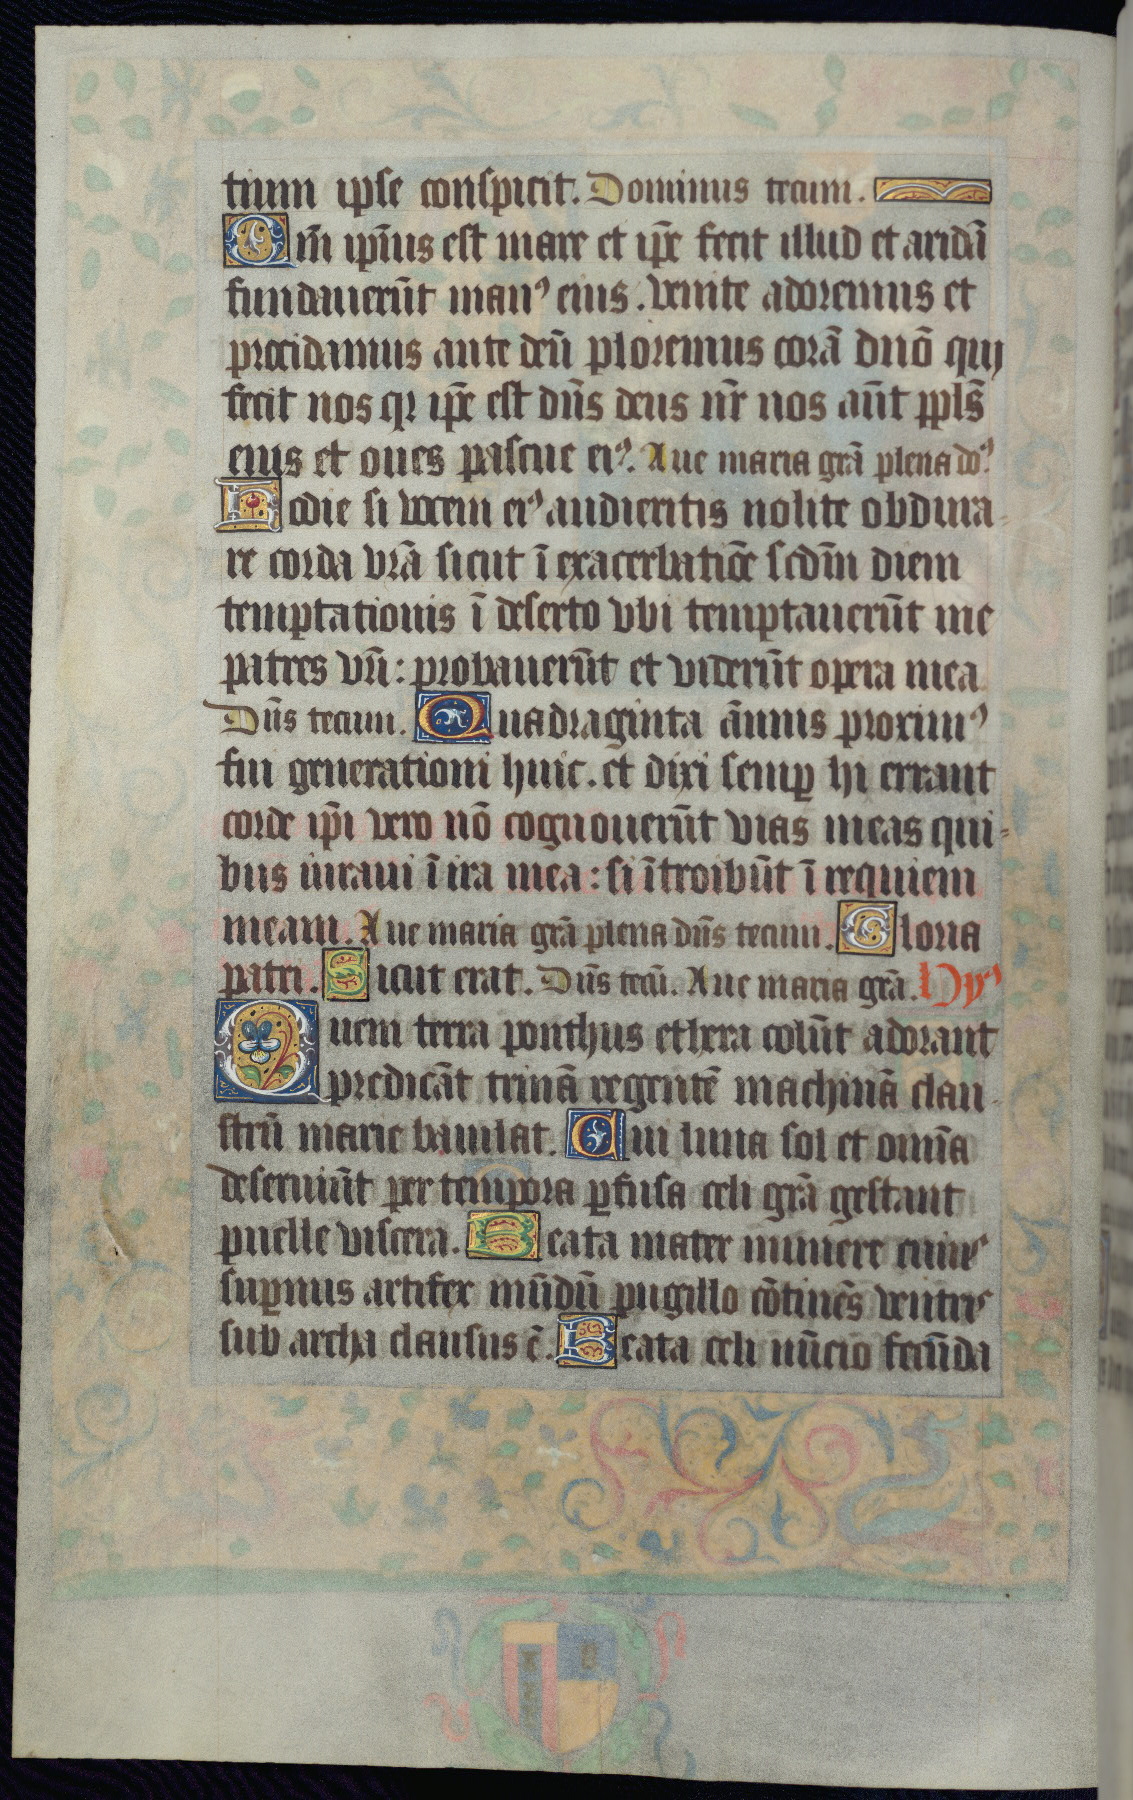 tium ipse conspicit. Dominus tecum.
Qm̃ ip̃ius est mare et ip̃e fecit illud et aridã
fundauerũt manꝰ eius. Venite adoremus et
procidamus ante deũ ploremus corã dnõ qui
fecit nos qꝛ ip̃e est dñs deus nr̃ nos aũt ppls̃
eius et oues pascue eiꝰ. Aue maria grã plena doꝰ
Hodie si vocem eiꝰ audieritis nolite obdura-
re corda vrã sicut ĩ exacerbatiõe scdm̃ diem
temptationis ĩ deserto vbi temptauerũt me
patres vrĩ: probauerũt et viderũt opera mea
Dñs tecum. Quadraginta ãnnis proximꝰ
fui generationi huic. et dixi semꝑ hi errant
corde ip̃i vero nõ cognouerũt vias meas qui-
bus iuraui ĩ ira mea: si ĩtroibũt ĩ requiem
meam. Aue maria grã plena dñs tecum. Gloria
patri. Sicut erat. Dñs tecũ. Aue maria grã. Hyꝰ
Quem terra ponthus ethera colũt adorant
predicãt trinã regentẽ machinã clau-
strũ marie baiulat. Cui luna sol et omĩa
deseruiũt per tempora ꝑfusa celi grã gestant
puelle viscera. Beata mater munere cuius
suꝑnus artifex mũdũ pugillo cõtinẽs ventris
sub archa clausus ẽ. Beata celi nũcio fecũda